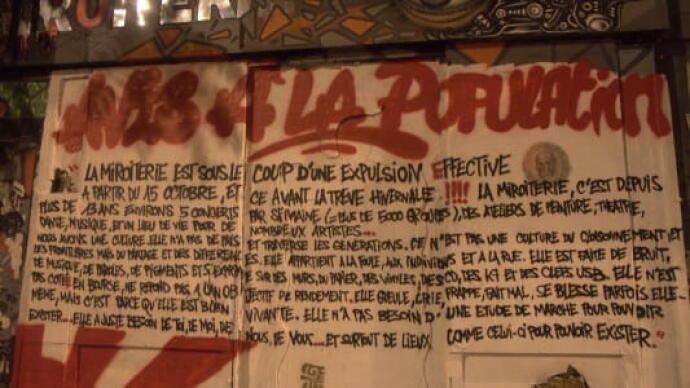 AVIS A LA POPULATION
LA MIROITERIE EST SOUS LE COUP D'UNE EXPULSION EFFECTIVE
A PARTIR DU 15 OCTOBRE, ET CE AVANT LA TRÊVE HIVERNALE !!!! LA MIROITERIE, C'EST DEPUIS
PLUS DE 13 ANS ENVIRONS 5 CONCERTS PAR SEMAINE (= PLUS DE 5000 GROUPES), DES ATELIERS DE PEINTURE, THEATRE,
DANSE, MUSIQUE, ET UN LIEU DE VIE POUR DE NOMBREUX ARTISTES
NOUS AVONS UNE CULTURE. ELLE N'A PAS DE PAYS ET TRAVERSE LES GENERATIONS. CE N'EST PAS UNE CULTURE DU CLOISONNEMENT ET
DES FRONTIERES MAIS DU PARTAGE ET DES DIFFERENCES. ELLE APPARTIENT A LA FOULE, AUX INDIVIDUS ET A LA RUE. ELLE EST FAITE DE BRUIT,
DE MUSIQUE, DE PAROLES, DE PIGMENTS ET S'EXPRIME SUR DES MURS, DU PAPIER, DES VINYLES, DES CD, DES K7 ET DES CLEFS USB. ELLE N'EST
PAS COTÉE EN BOURSE, NE REPOND PAS A UN OBJECTIF DE RENDEMENT. ELLE GUEULE, CRIE, FRAPPE, FAIT MAL, SE BLESSE PARFOIS ELLE-
MEME, MAIS C'EST PARCE QU'ELLE EST BIEN VIVANTE. ELLE N'A PAS BESOIN D'UNE ETUDE DE MARCHE POUR POUVOIR
EXISTER.... ELLE A JUSTE BESOIN DE TOI, DE MOI, DE NOUS, DE VOUS... ET SURTOUT DE LIEUX COMME CELUI-CI POUR POUVOIR EXISTER